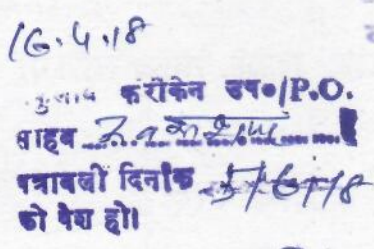 16.4.18
फरीकेन उप०/P.O.
साहब
पत्रावली दिनांक 5/6/18
को पेश हो।